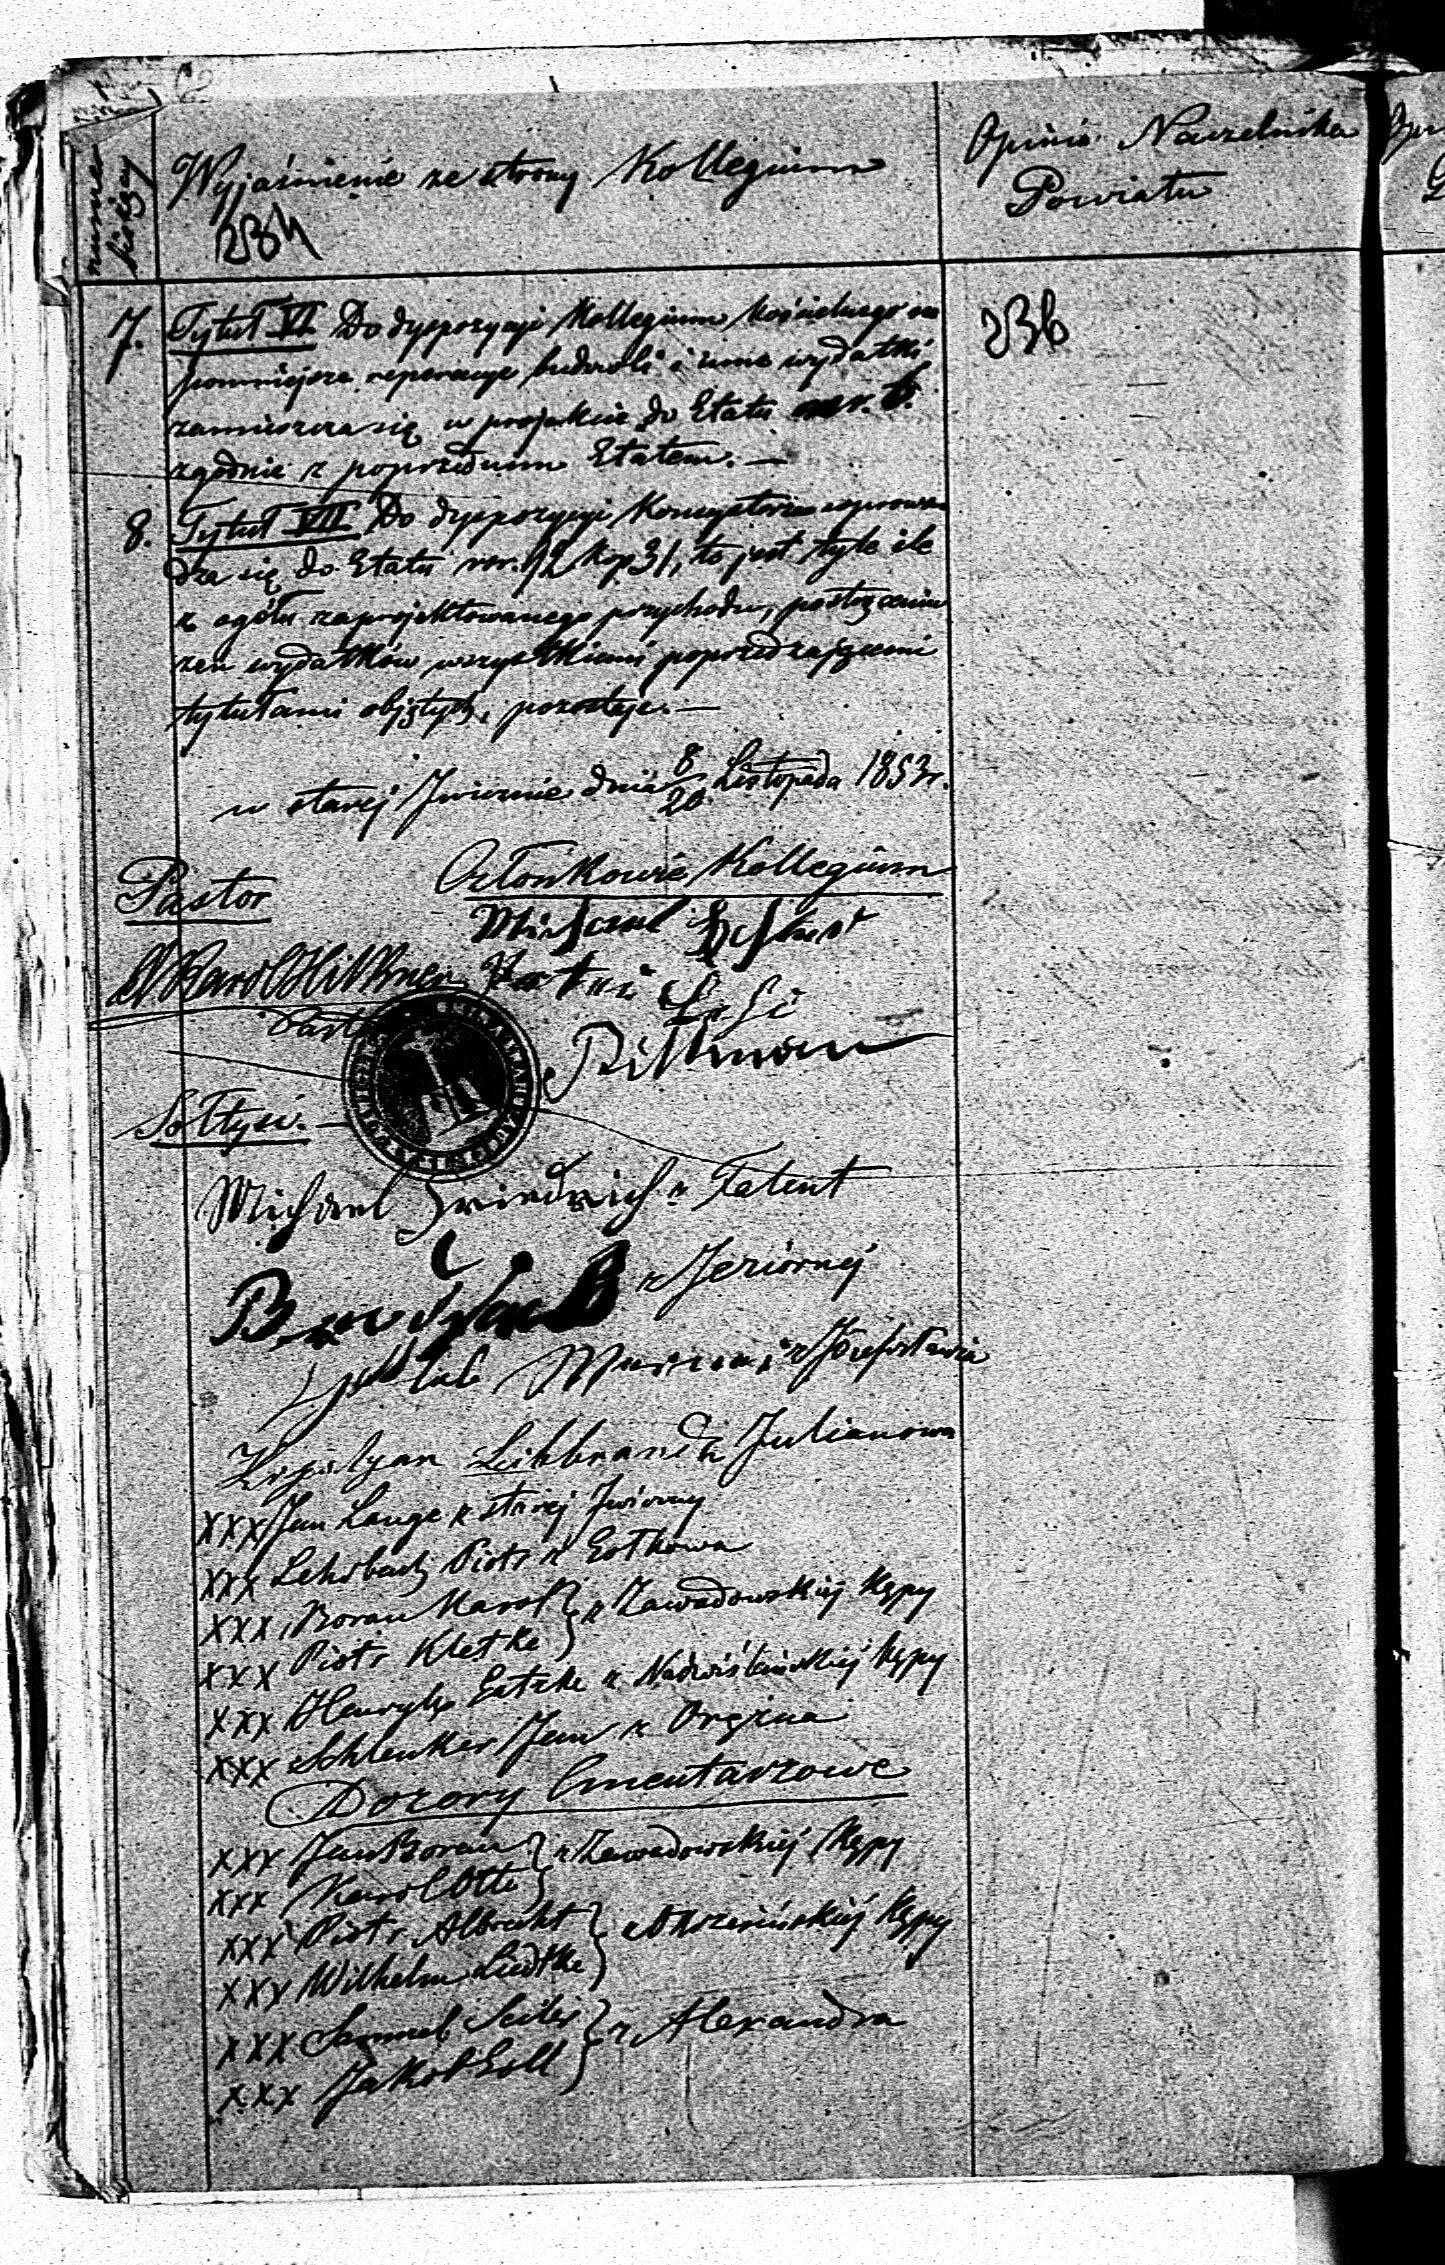 numer bieżący
Wyjaśnienie ze strony Kollegium
Opinia Naczelnika
Powiatu
234
236
7. Tytuł VI. Do dyspozycyi Kollegium kościelnego na
pomniejsze reperacye budowli i inne wydatki
zamieszcza się w projekcie do Etatu rsr. 6.
zgodnie z poprzednim Etatem. —
8. Tytuł VII Do dyspozycyi Konsystorza wprowa-
dza się do Etatu rsr. 92 kop. 31, to jest tyle ile
z ogółu zaprojektowanego przychodu, postrąceniu
zeń wydatków wszystkiemi poprzedzającemi
tytułami objętych, pozostaje. —
w starej Iwicznie dnia 8/20 Listopada 1853 r.
Pastor
Członkowie Kollegium
Michael
Karol
Pastor
Rittman
Sołtysi. —
Michael Friedrich z Falent
z Jeziórnej
z Józefosławia
Libbrand z Julianowa
XXX Jan Lange z starej Iwiczny
XXX Piotr z
XXX Boran Karol } z Zawadowskiej Kępy
XXX Piotr Kletke
XXX Henryk z Nadwiślańskiej Kępy
XXX Schlenker Jan z
Dozory Cmentarzowe
XXX Jan Boran } z Zawadowskiej Kępy
XXX Karol Otto
XXX Piotr Albrecht } z Okrzeińskiej Kępy
XXX Wilhelm Liedtke
XXX Samuel Seiler } z Alexandra
XXX Jakob